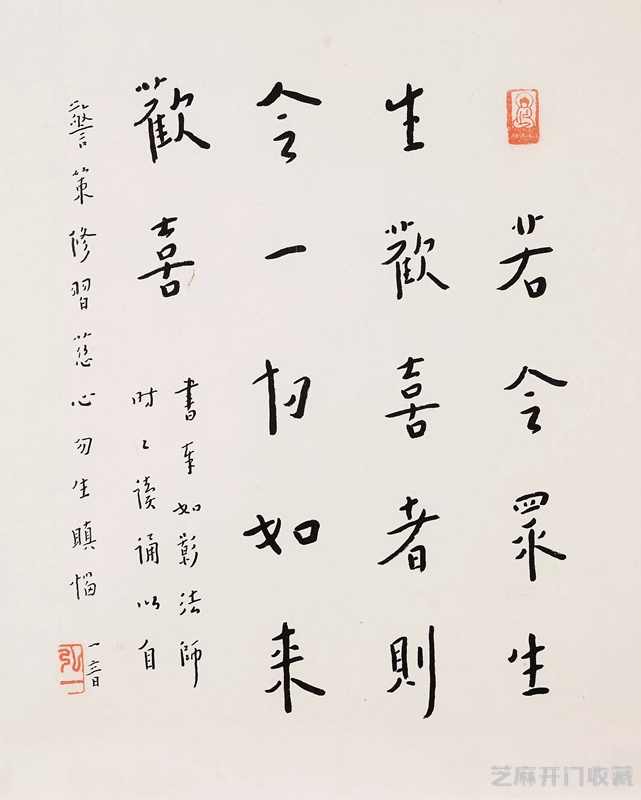 若令眾生
生歡喜者則
令一切如来
歡喜
書奉如影法師
时々讀誦以自
警策修習慈心勿生瞋惱
一音
弘一
芝麻开门收藏